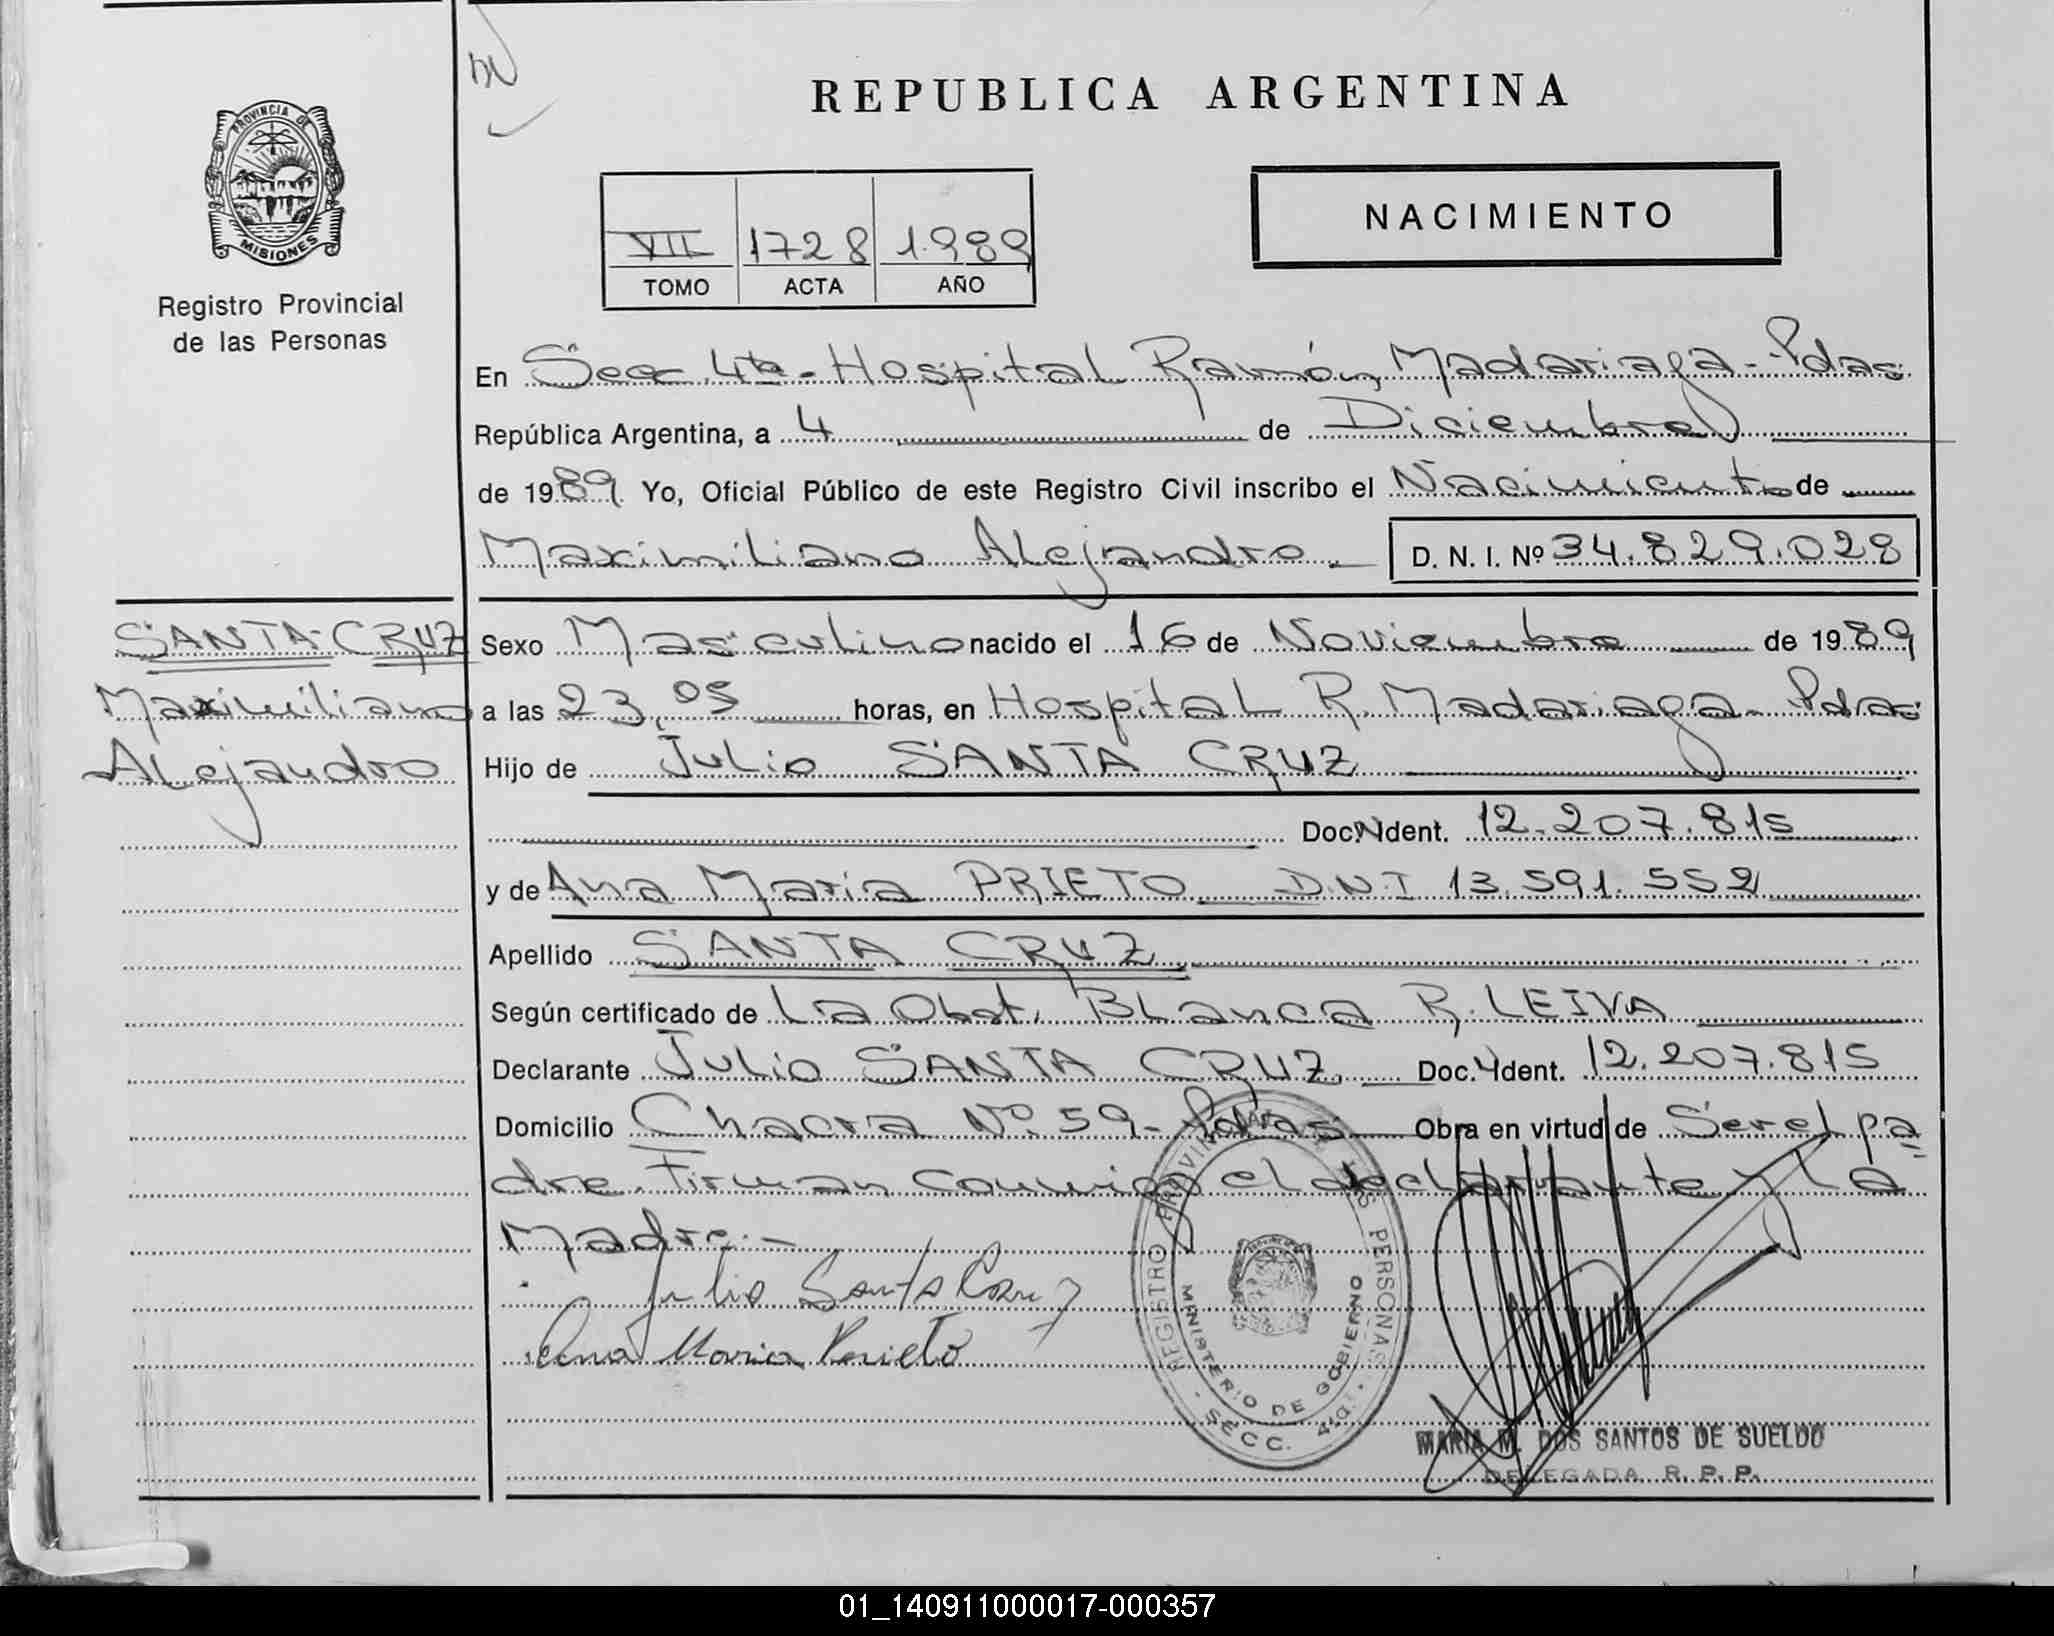 REPUBLICA ARGENTINA
PROVINCIA DE
MISIONES
Registro Provincial
de las Personas
NACIMIENTO
VII 1728 1.989
TOMO ACTA AÑO
En Secc 4ta - Hospital Ramón Madariaga - Pdas
República Argentina, a 4 de Diciembre
de 1989 Yo, Oficial Público de este Registro Civil inscribo el Nacimiento de
Maximiliano Alejandro D. N. I. Nº 34.829.028
SANTA CRUZ
Maximiliano
Alejandro
Sexo Masculino nacido el 16 de Noviembre de 1989
a las 23,05 horas, en Hospital R. Madariaga - Pdas
Hijo de Julio SANTA CRUZ
Doc. Ident. 12.207.815
y de Ana Maria PRIETO D.N.I 13.591.552
Apellido SANTA CRUZ
Según certificado de La Obst. Blanca R. LEIVA
Declarante Julio SANTA CRUZ Doc. Ident. 12.207.815
Domicilio Chacra Nº 59 - Pdas Obra en virtud de Ser el pa
dre. Firman conmigo el declarante y la
Madre.-
Julio Santa Cruz
Ana Maria Prieto
REGISTRO PROVINCIAL DE LAS PERSONAS
MINISTERIO DE GOBIERNO
SECC. 4ta.
MARIA M. DOS SANTOS DE SUELDO
DELEGADA R. P. P.
01_140911000017-000357